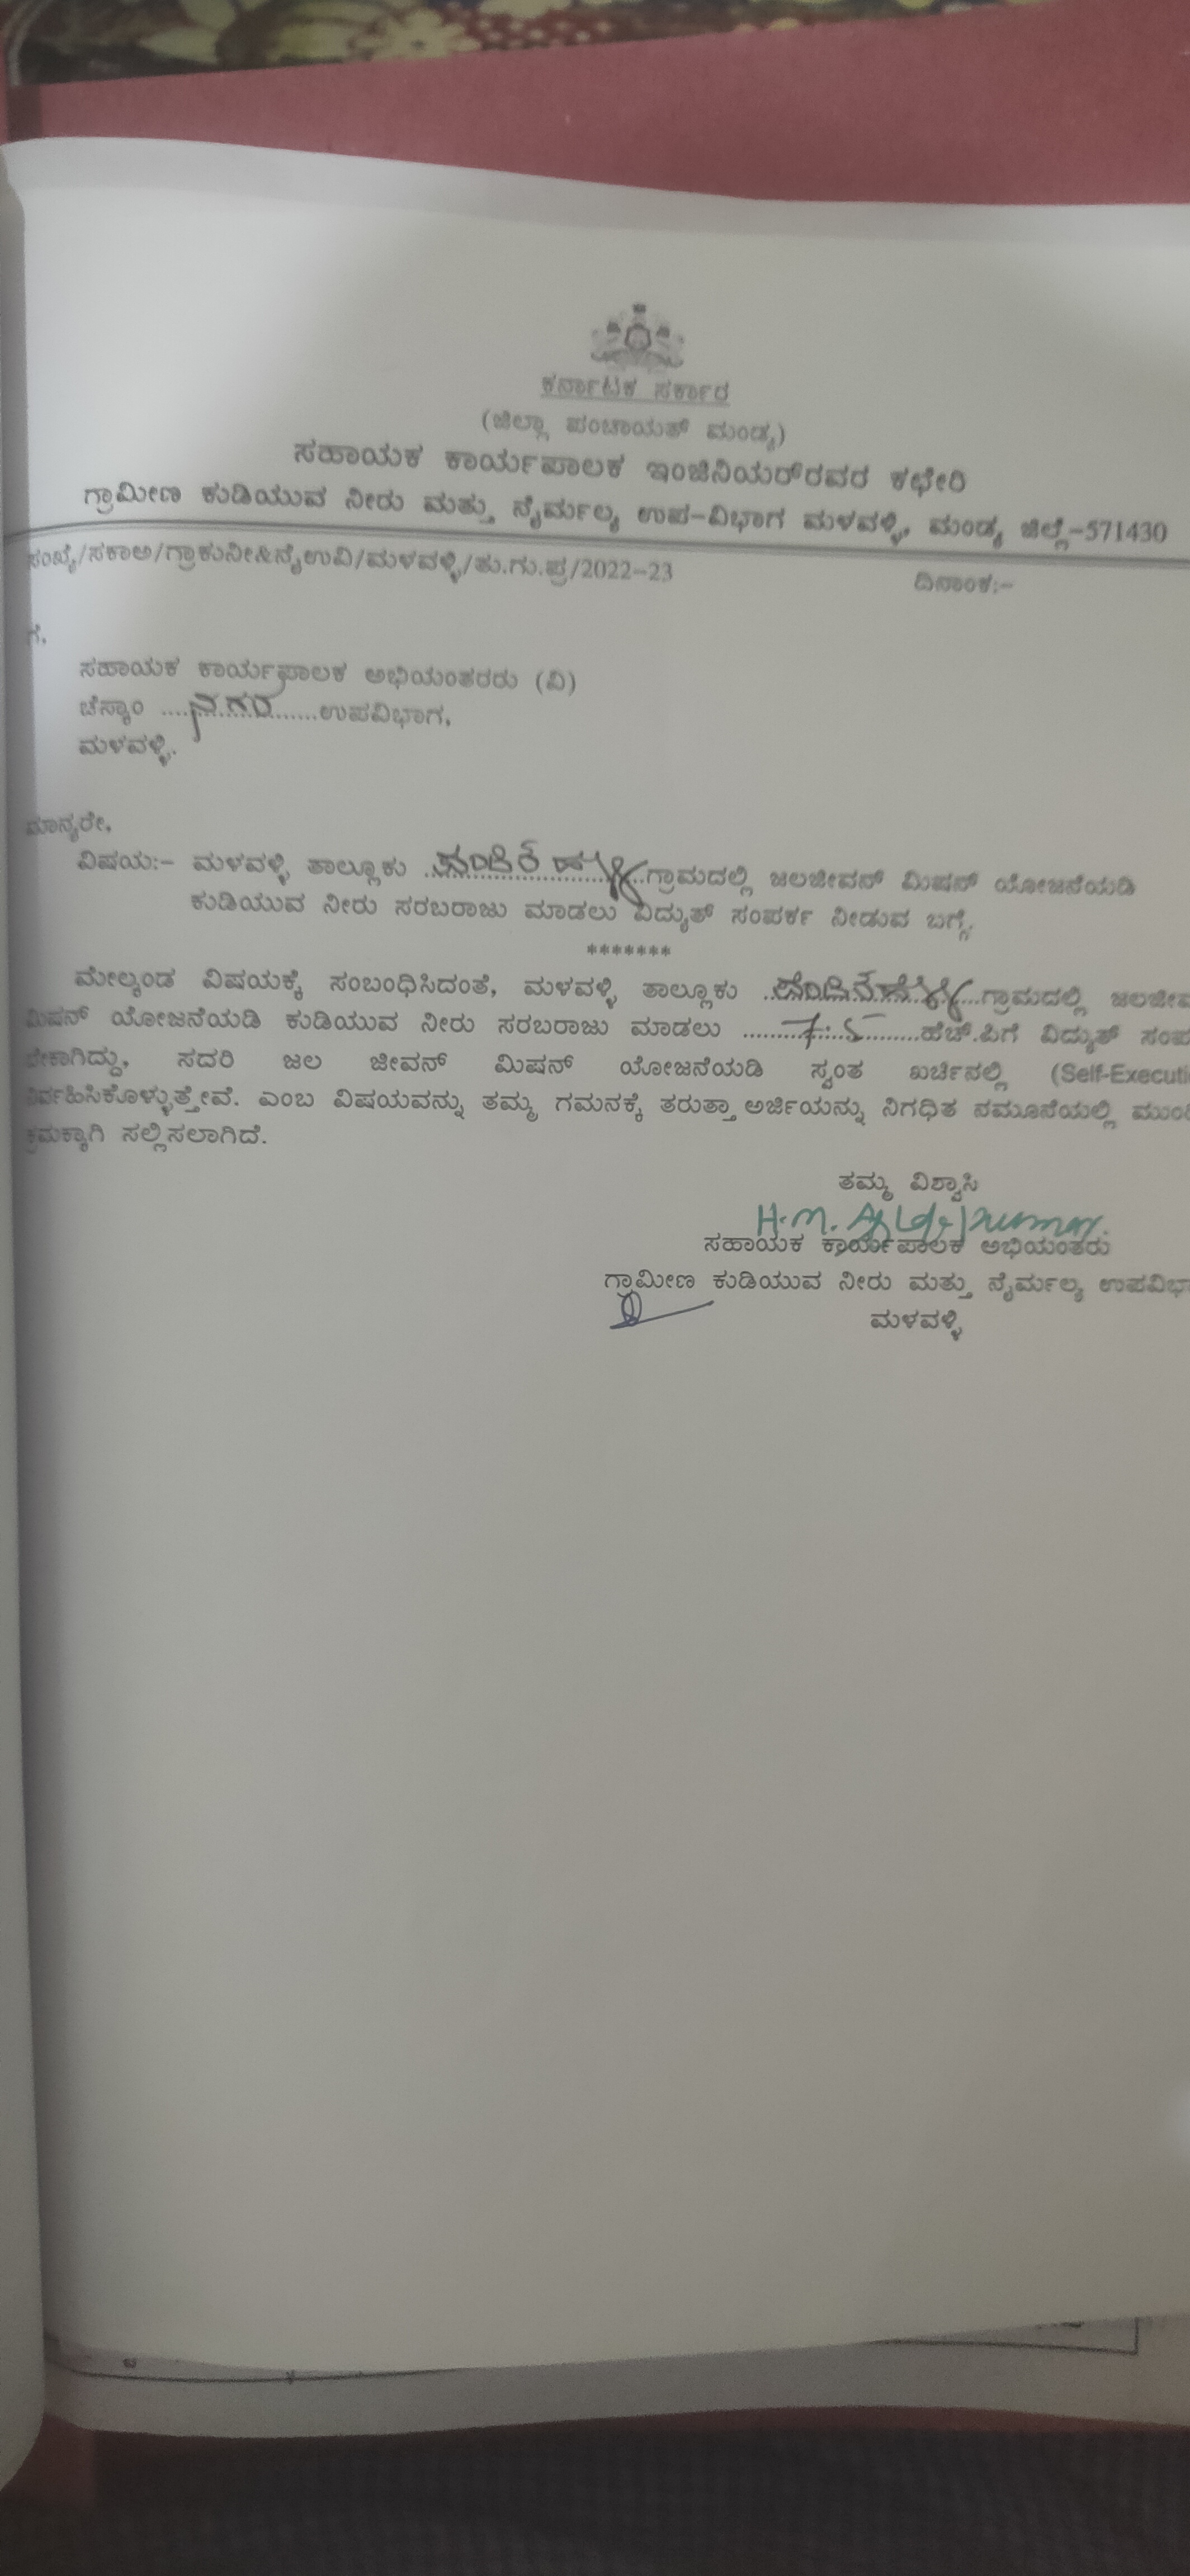 ಕರ್ನಾಟಕ ಸರ್ಕಾರ
(ಜಿಲ್ಲಾ ಪಂಚಾಯತ್ ಮಂಡ್ಯ)
ಸಹಾಯಕ ಕಾರ್ಯಪಾಲಕ ಇಂಜಿನಿಯರ್‌ರವರ ಕಛೇರಿ
ಗ್ರಾಮೀಣ ಕುಡಿಯುವ ನೀರು ಮತ್ತು ನೈರ್ಮಲ್ಯ ಉಪ-ವಿಭಾಗ ಮಳವಳ್ಳಿ, ಮಂಡ್ಯ ಜಿಲ್ಲೆ-571430
ಸಂಖ್ಯೆ/ಸಕಾಅ/ಗ್ರಾಕುನೀ&ನೈಉವಿ/ಮಳವಳ್ಳಿ/ತು.ಗು.ಪ್ರ/2022-23 ದಿನಾಂಕ:-
ಗೆ,
ಸಹಾಯಕ ಕಾರ್ಯಪಾಲಕ ಅಭಿಯಂತರರು (ವಿ)
ಚೆಸ್ಕಾಂ ....ನಗರ......ಉಪವಿಭಾಗ,
ಮಳವಳ್ಳಿ.
ಮಾನ್ಯರೇ,
ವಿಷಯ:- ಮಳವಳ್ಳಿ ತಾಲ್ಲೂಕು ಗ್ರಾಮದಲ್ಲಿ ಜಲಜೀವನ್ ಮಿಷನ್ ಯೋಜನೆಯಡಿ
ಕುಡಿಯುವ ನೀರು ಸರಬರಾಜು ಮಾಡಲು ವಿದ್ಯುತ್ ಸಂಪರ್ಕ ನೀಡುವ ಬಗ್ಗೆ.
*******
ಮೇಲ್ಕಂಡ ವಿಷಯಕ್ಕೆ ಸಂಬಂಧಿಸಿದಂತೆ, ಮಳವಳ್ಳಿ ತಾಲ್ಲೂಕು ಗ್ರಾಮದಲ್ಲಿ ಜಲಜೀವ
ಮಿಷನ್ ಯೋಜನೆಯಡಿ ಕುಡಿಯುವ ನೀರು ಸರಬರಾಜು ಮಾಡಲು .........7.5.........ಹೆಚ್.ಪಿಗೆ ವಿದ್ಯುತ್ ಸಂಪ
ಬೇಕಾಗಿದ್ದು, ಸದರಿ ಜಲ ಜೀವನ್ ಮಿಷನ್ ಯೋಜನೆಯಡಿ ಸ್ವಂತ ಖರ್ಚಿನಲ್ಲಿ (Self-Executi
ನಿರ್ವಹಿಸಿಕೊಳ್ಳುತ್ತೇವೆ. ಎಂಬ ವಿಷಯವನ್ನು ತಮ್ಮ ಗಮನಕ್ಕೆ ತರುತ್ತಾ ಅರ್ಜಿಯನ್ನು ನಿಗಧಿತ ನಮೂನೆಯಲ್ಲಿ ಮುಂ
ಕ್ರಮಕ್ಕಾಗಿ ಸಲ್ಲಿಸಲಾಗಿದೆ.
ತಮ್ಮ ವಿಶ್ವಾಸಿ
H.M.
ಸಹಾಯಕ ಕಾರ್ಯಪಾಲಕ ಅಭಿಯಂತರು
ಗ್ರಾಮೀಣ ಕುಡಿಯುವ ನೀರು ಮತ್ತು ನೈರ್ಮಲ್ಯ ಉಪವಿಭಾ
ಮಳವಳ್ಳಿ